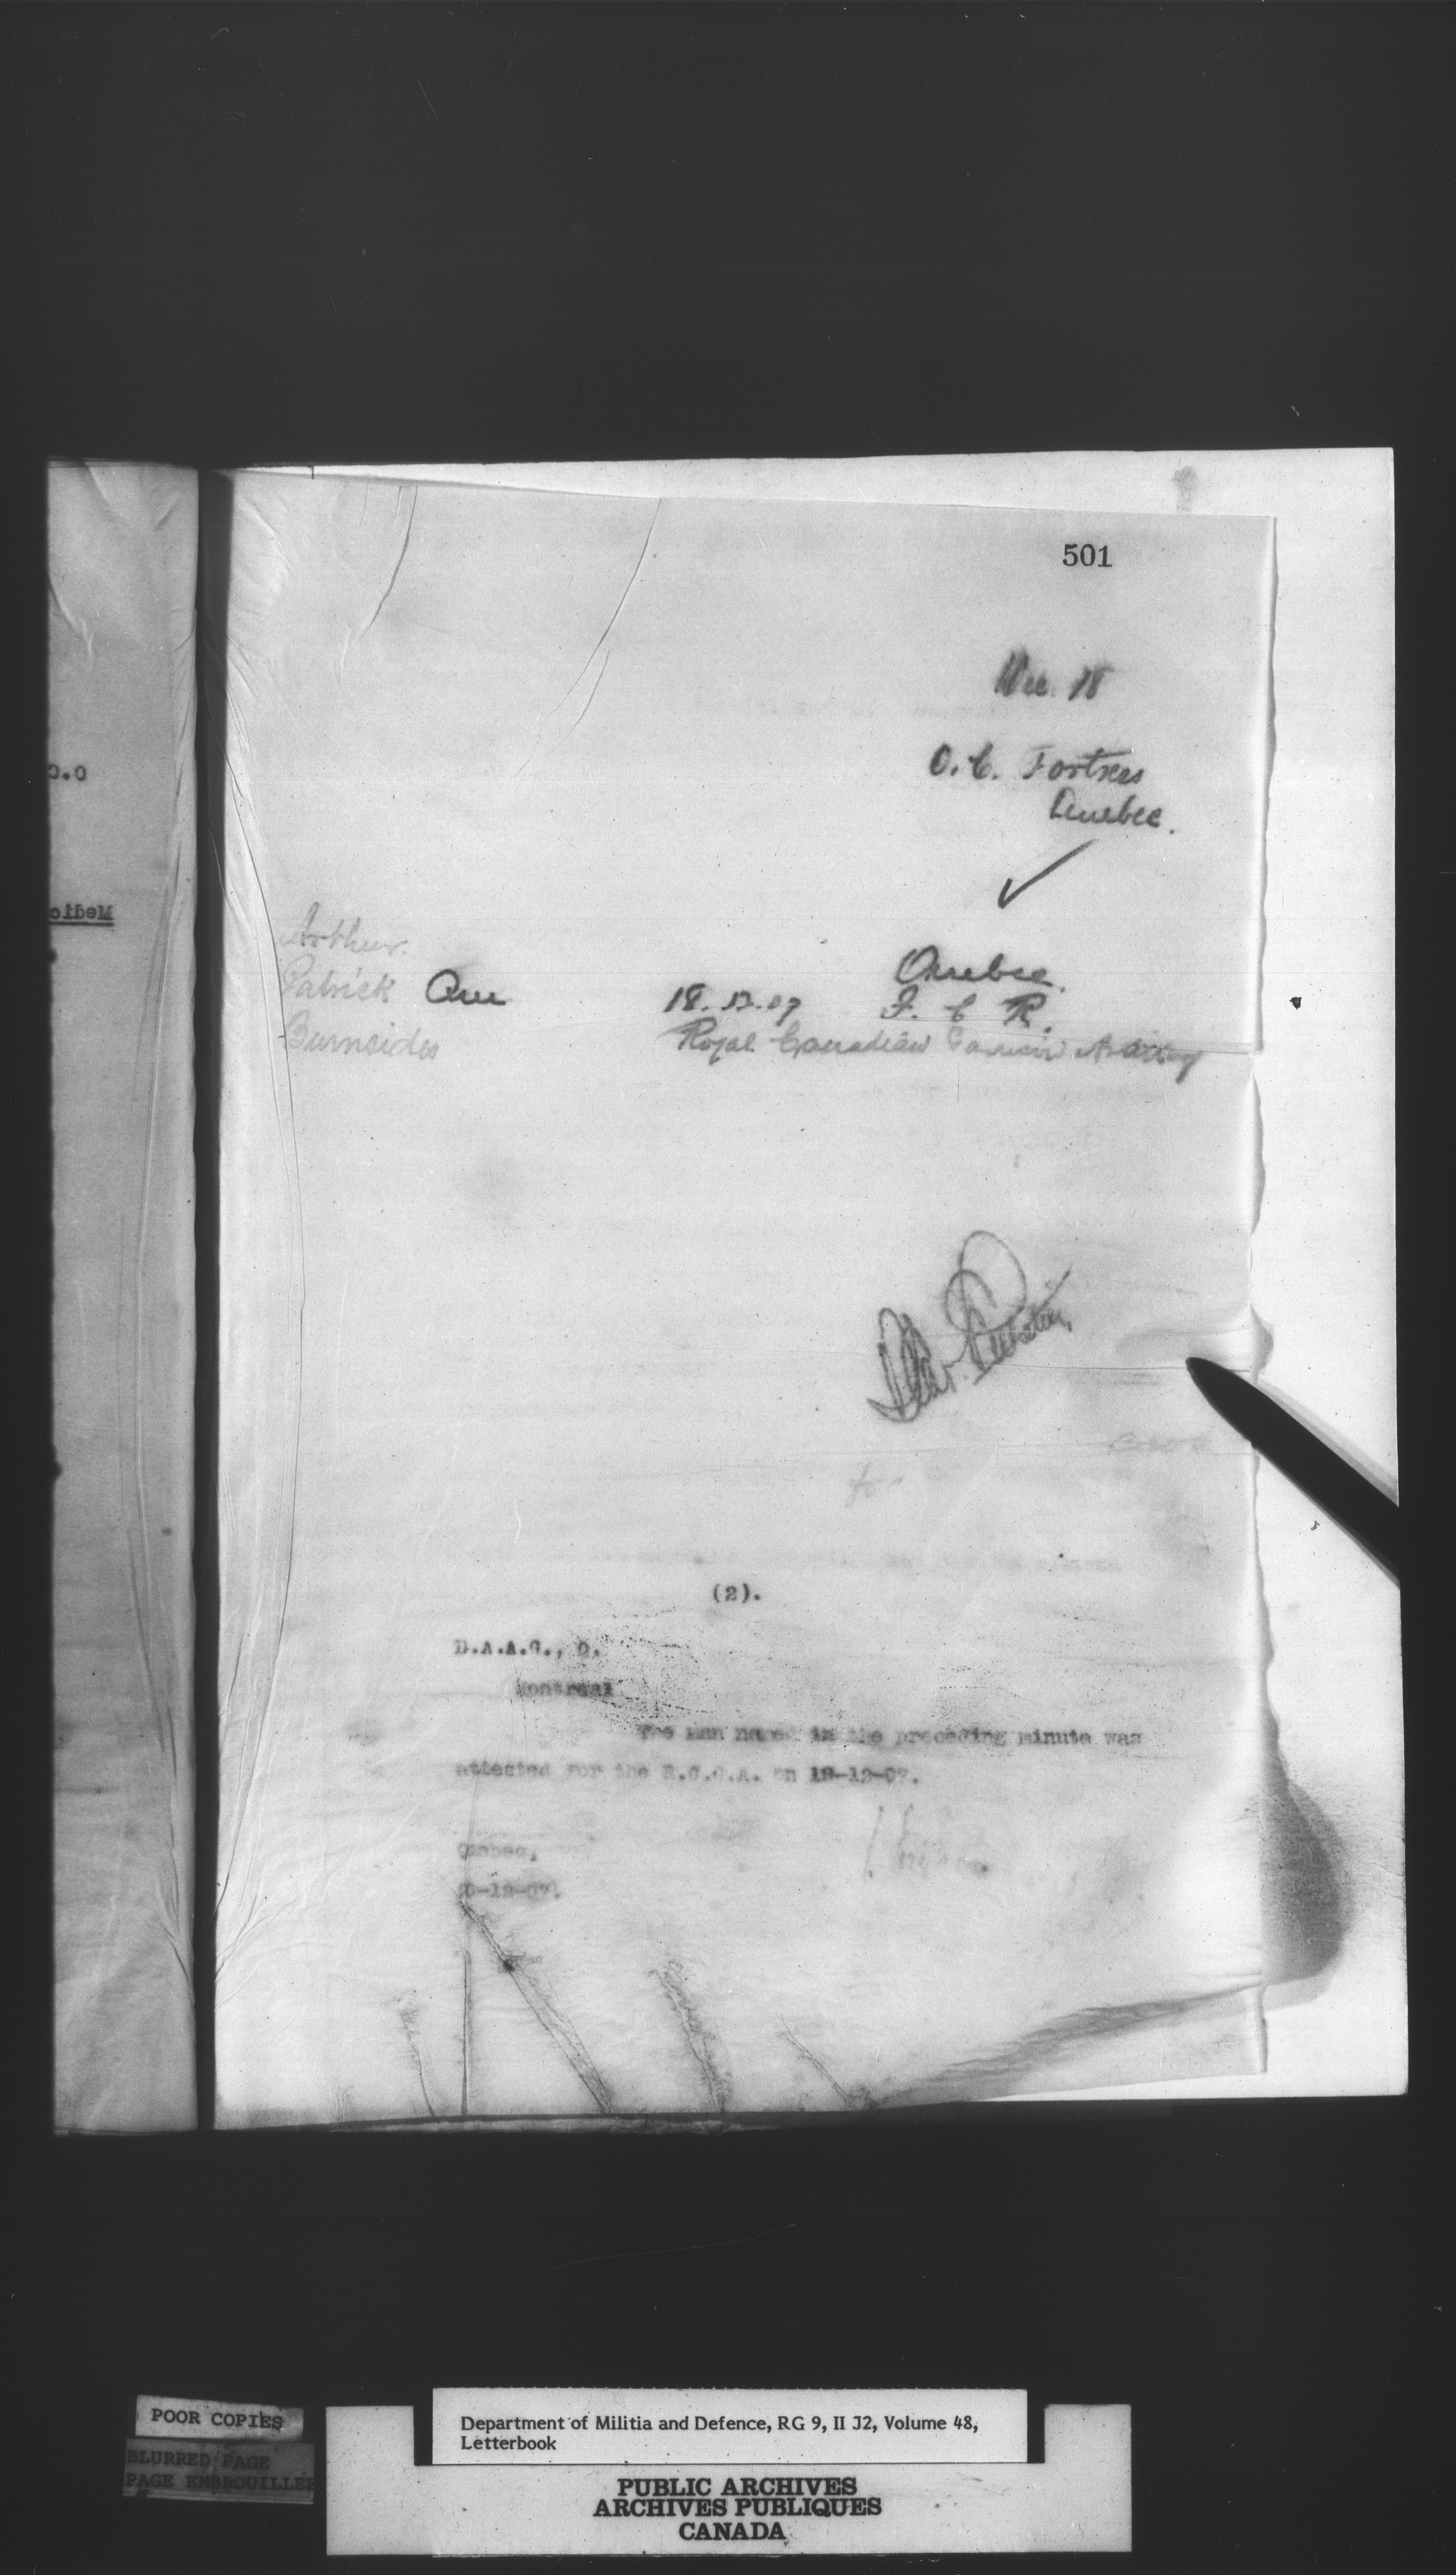 501
Dec. 18
O.C. Fortress
Quebec.
Arthur
Patrick One
Burnsides
Quebec.
18.12.07 F. C R.
Royal Canadian Garrison Artillery
for
(2).
D.A.A.G., Q.
Montreal
The man named in the preceding minute was
attested for the R.C.G.A. on 18-12-07.
Quebec,
-12-07.
POOR COPIES
BLURRED PAGE
PAGE EMBROUILLÉE
Department of Militia and Defence, RG 9, II J2, Volume 48,
Letterbook
PUBLIC ARCHIVES
ARCHIVES PUBLIQUES
CANADA